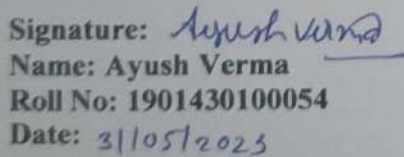 Signature: Ayush Verma
Name: Ayush Verma
Roll No: 1901430100054
Date: 31/05/2023